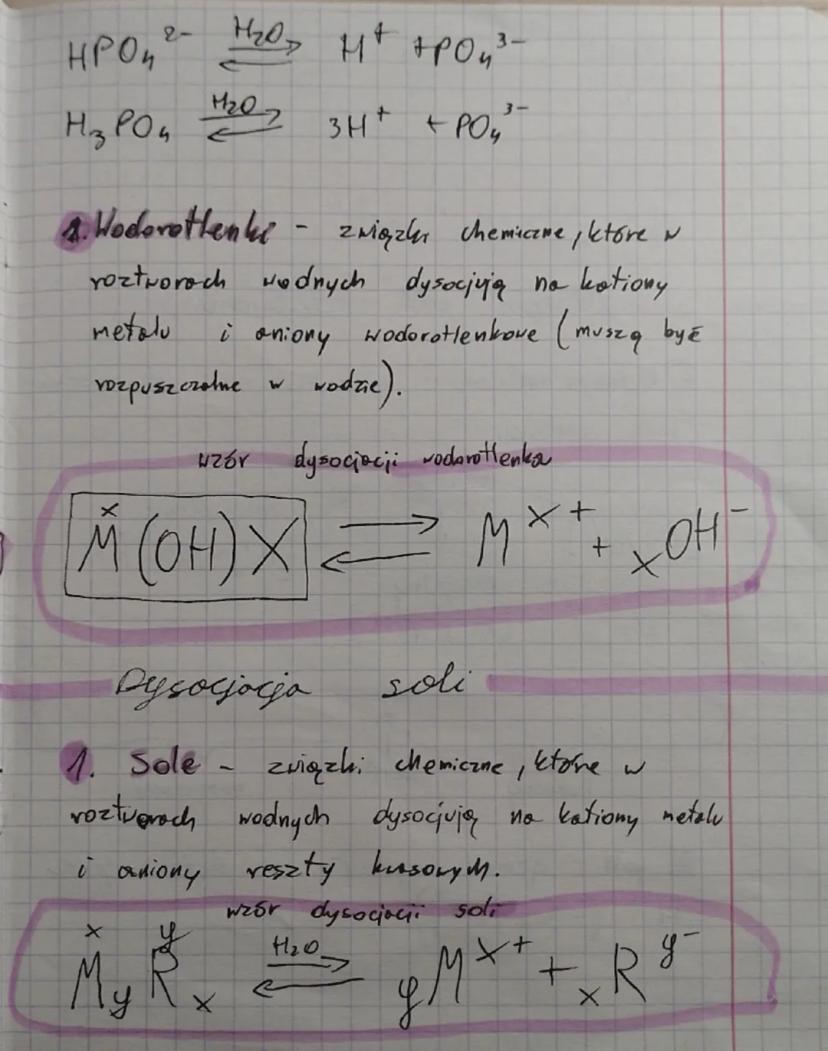 HPO₄²⁻ ⇌ H₂O H⁺ + PO₄³⁻
H₃PO₄ ⇌ H₂O 3H⁺ + PO₄³⁻
1. Wodorotlenki - związki chemiczne, które w
roztworach wodnych dysocjują na kationy
metalu i aniony wodorotlenkowe (muszą być
rozpuszczalne w wodzie).
wzór dysocjacji wodorotlenka
x
M(OH)X ⇌ Mˣ⁺ + xOH⁻
Dysocjacja soli
1. Sole - związki chemiczne, które w
roztworach wodnych dysocjują na kationy metalu
i aniony reszty kwasowym.
wzór dysocjacji soli
x y
MyRx ⇌ H₂O yMˣ⁺ + xRʸ⁻